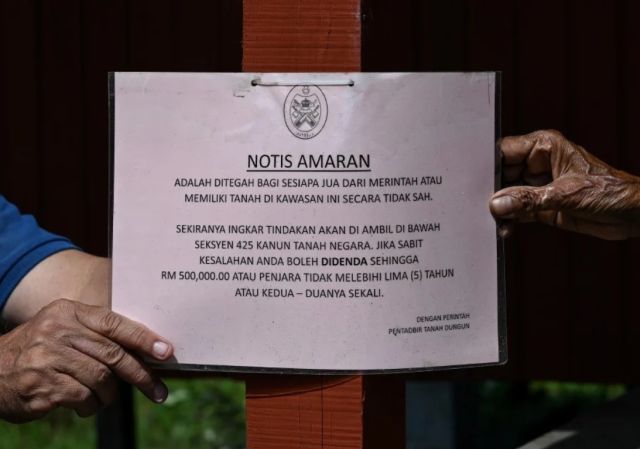 NOTIS AMARAN
ADALAH DITEGAH BAGI SESIAPA JUA DARI MERINTAH ATAU
MEMILIKI TANAH DI KAWASAN INI SECARA TIDAK SAH.
SEKIRANYA INGKAR TINDAKAN AKAN DI AMBIL DI BAWAH
SEKSYEN 425 KANUN TANAH NEGARA. JIKA SABIT
KESALAHAN ANDA BOLEH DIDENDA SEHINGGA
RM 500,000.00 ATAU PENJARA TIDAK MELEBIHI LIMA (5) TAHUN
ATAU KEDUA – DUANYA SEKALI.
DENGAN PERINTAH
PENTADBIR TANAH DUNGUN